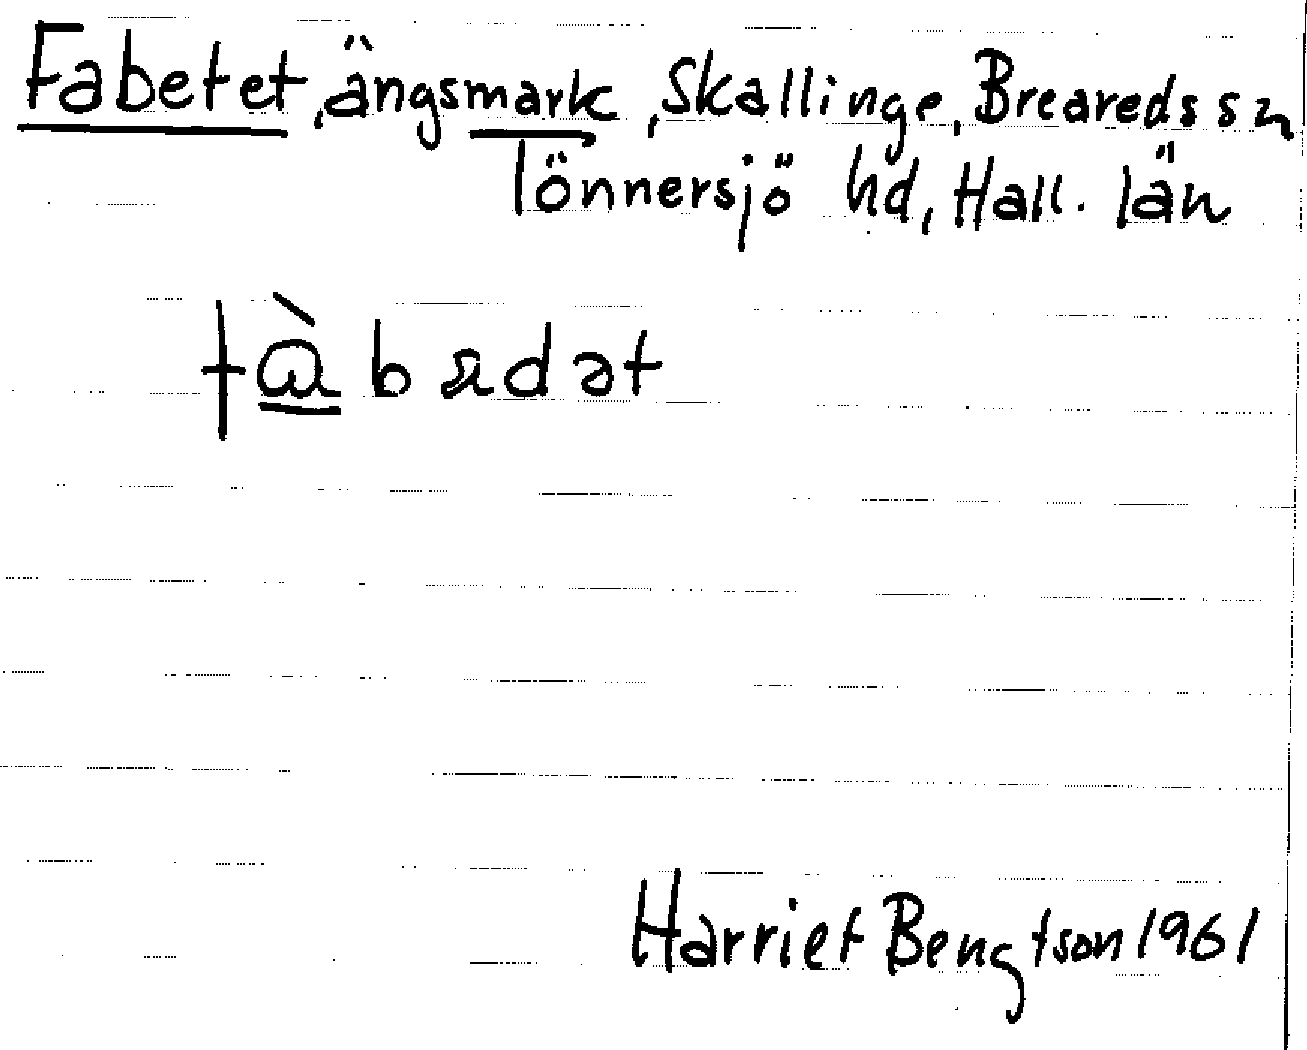 Fabetet, ängsmark, Skallinge, Breareds sn
Tönnersjö hd, Hall. län
Harriet Bengtson 1961